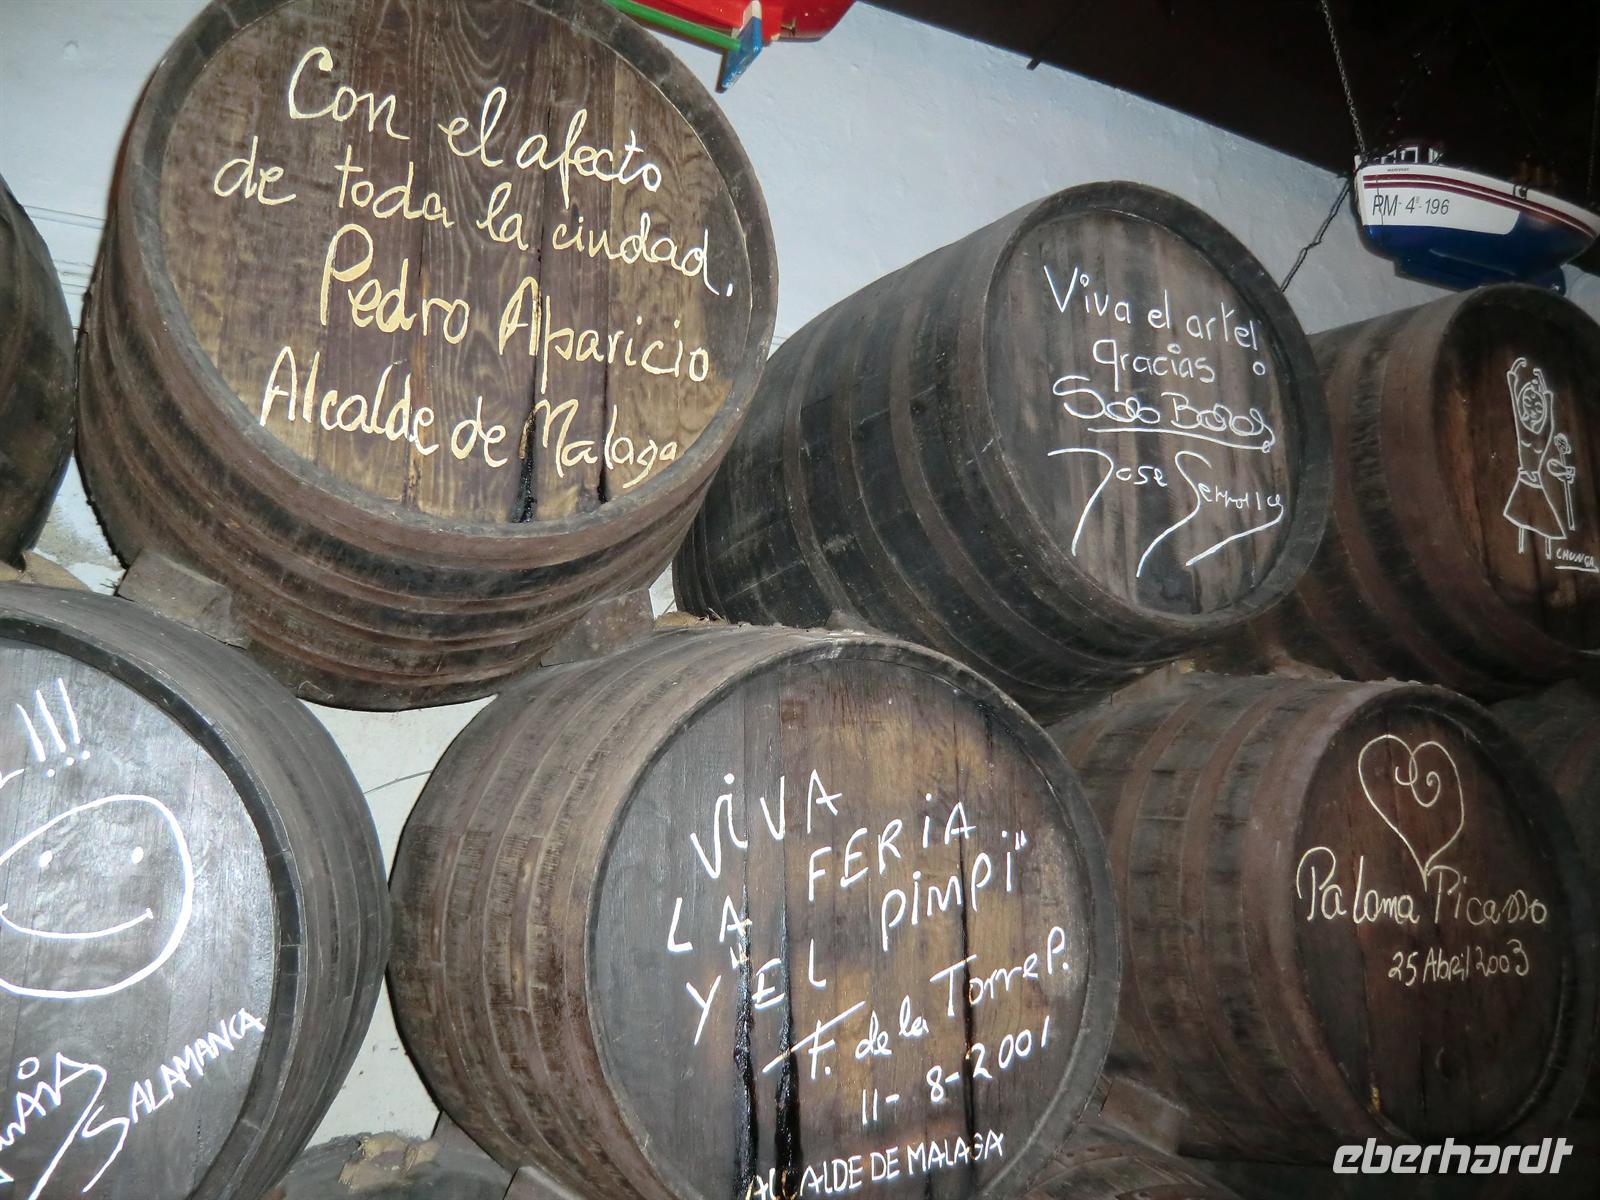 Con el afecto
de toda la ciudad.
Pedro Aparicio
Alcalde de Malaga
Viva el arte!
gracias
Jose
PM-4ª-196
CHUNGA
!!!
SALAMANCA
VIVA
LA FERIA
Y EL PIMPI"
F. de la Torre P.
11-8-2001
ALCALDE DE MALAGA
Paloma Picasso
25 Abril 2003
eberhardt